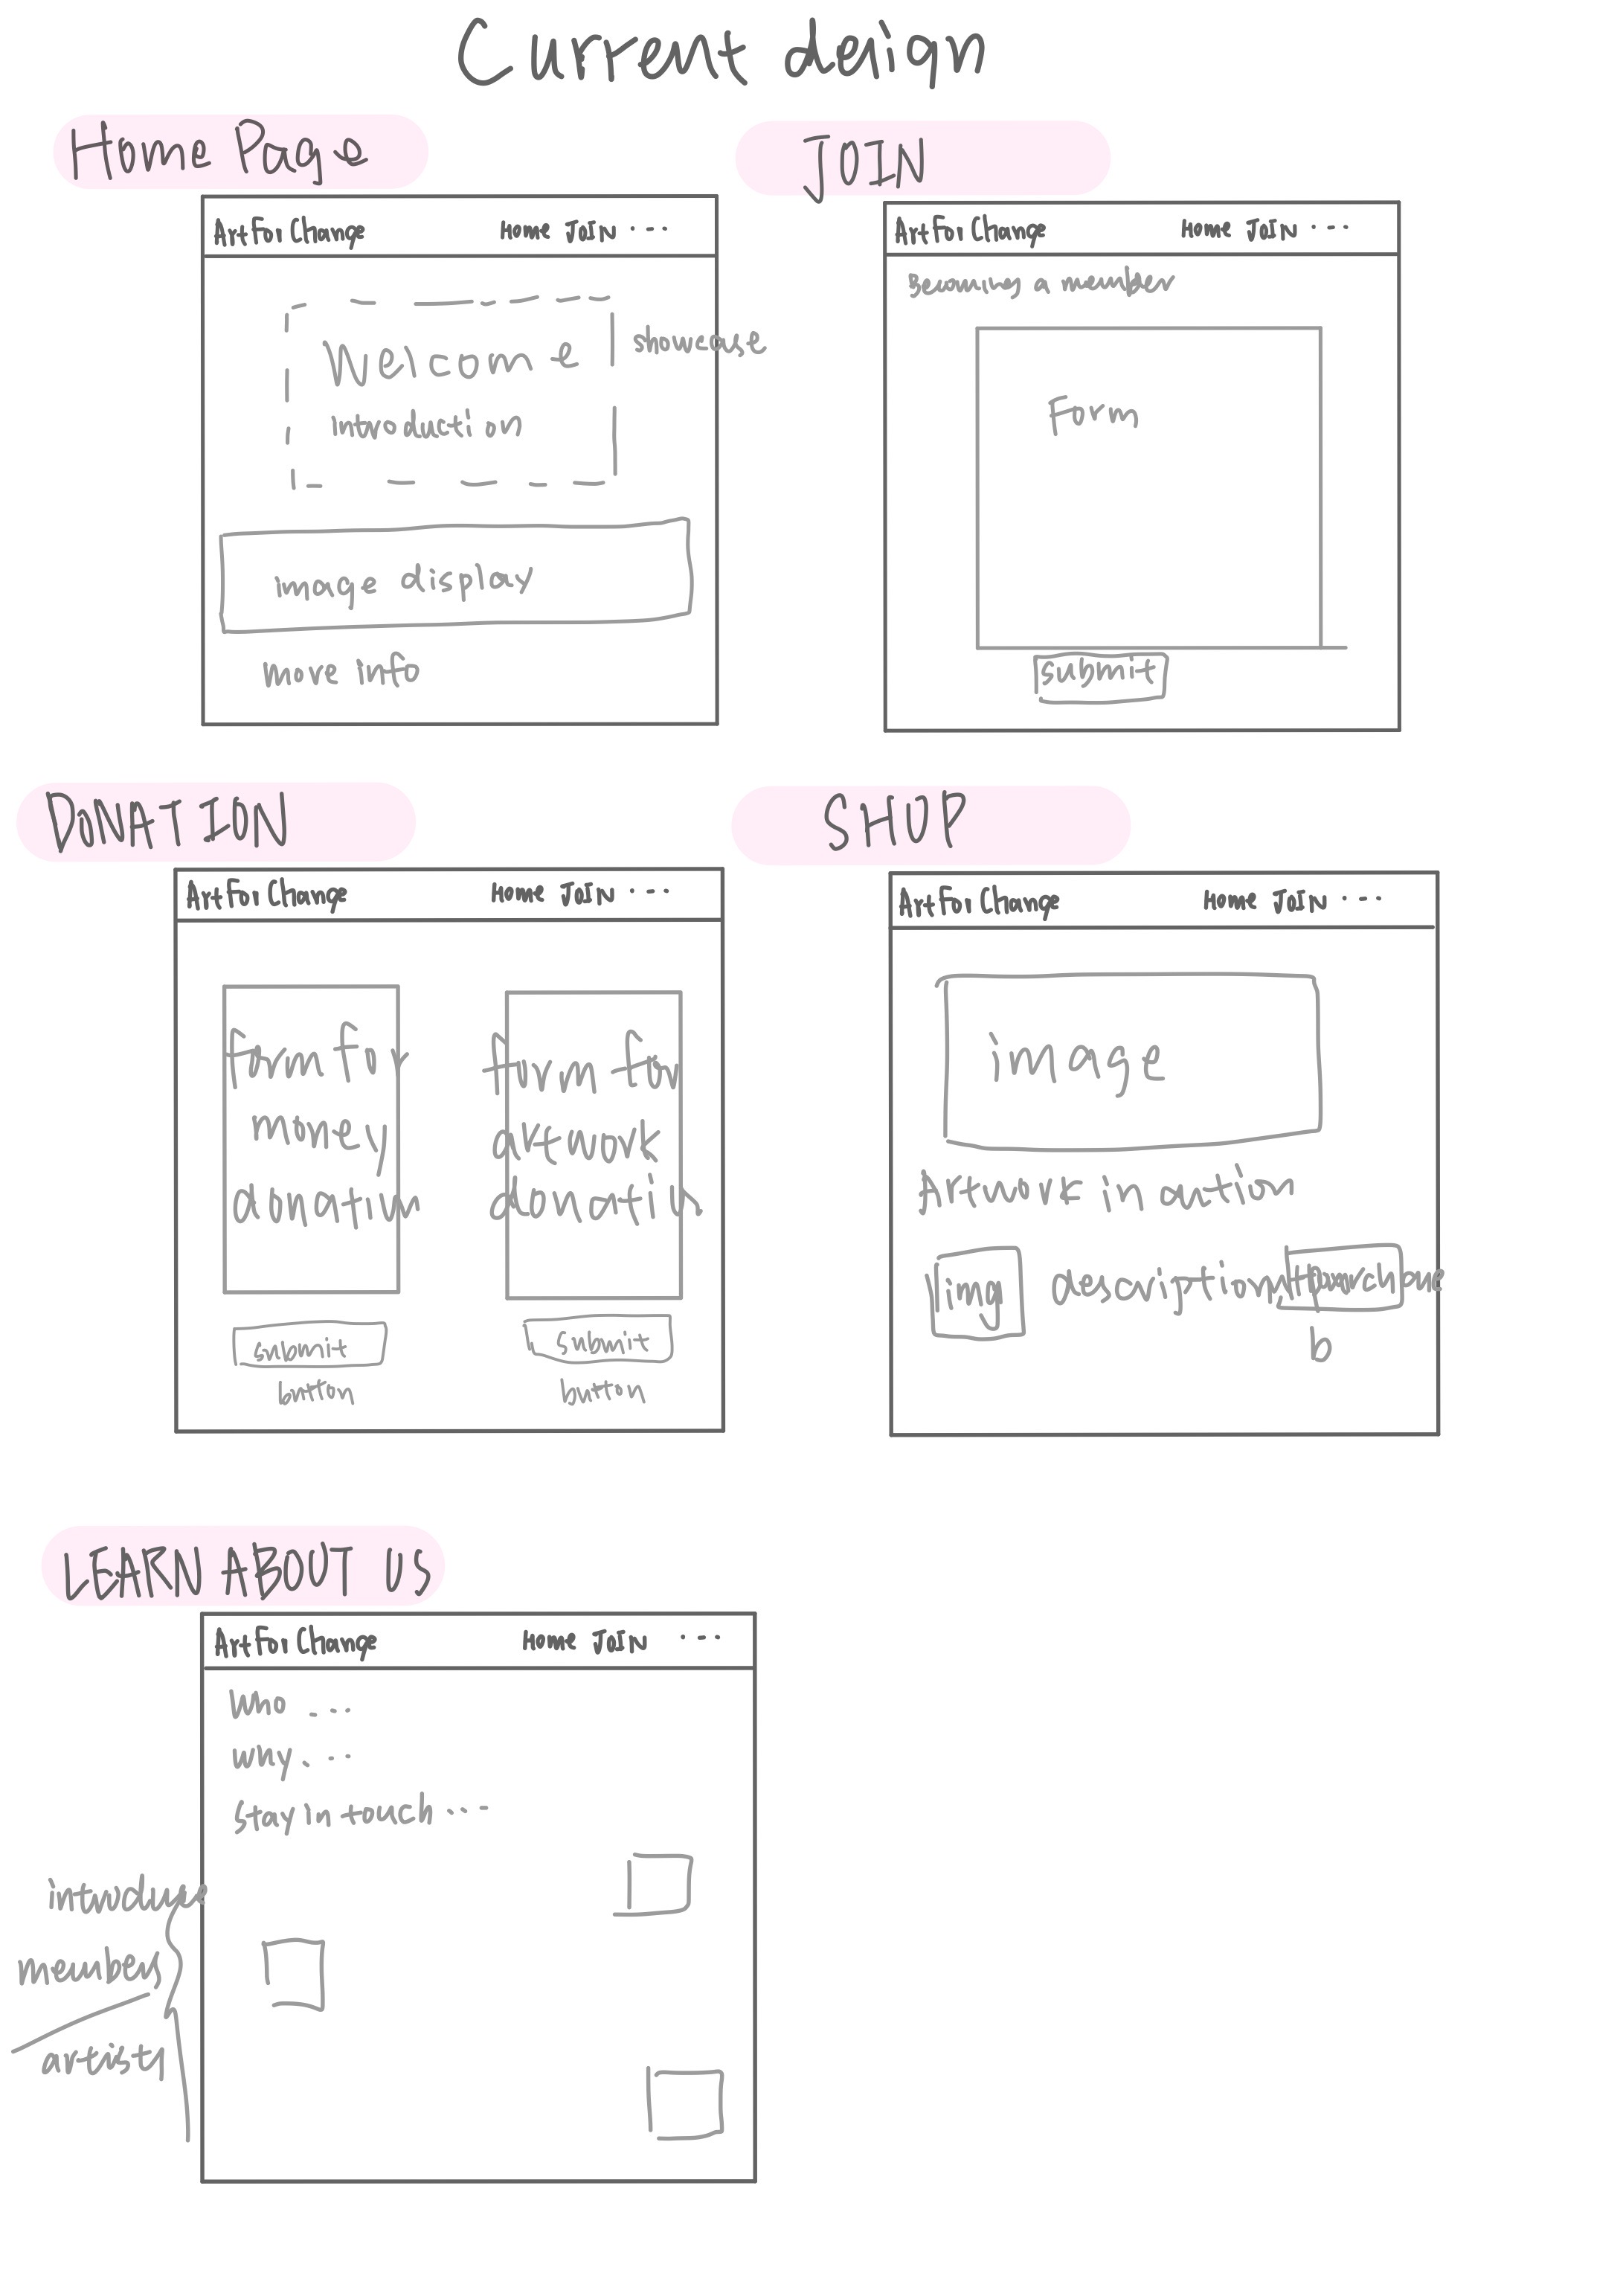 Current deign
Home Page
JOIN
ArtForChange Home JOIN ...
Welcome
introduction
showcase
image display
more info
ArtForChange Home JOIN ...
Becoming a member
Form
submit
DONATION
SHOP
ArtForChange Home JOIN ...
form for
money
donation
submit
button
form for
artwork
donation
submit
button
ArtForChange Home JOIN ...
image
Artwork in aution
img description
purchase
b
LEARN ABOUT US
ArtForChange Home JOIN ...
who ...
why. ...
stay in touch ...
introduce
members
artists